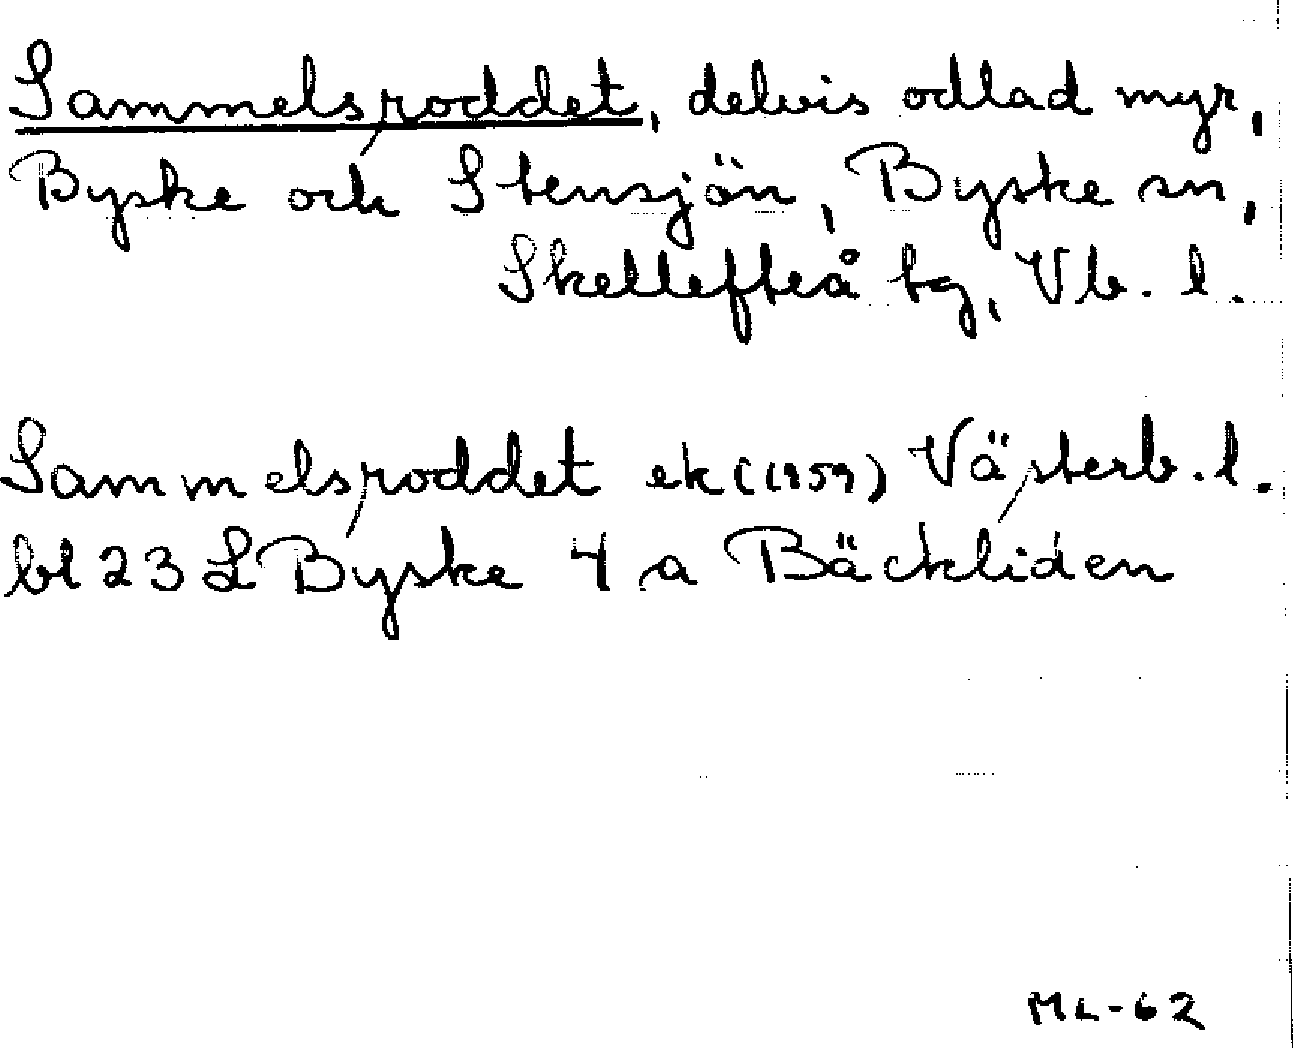 Sammelsroddet, delvis odlad myr,
Byske och Stensjön, Byske sn,
Skellefteå tg, Vb. l.
Sammelsroddet ek (1959) Västerb. l.
bl 23 L Byske 4 a Bäckliden
ML-62